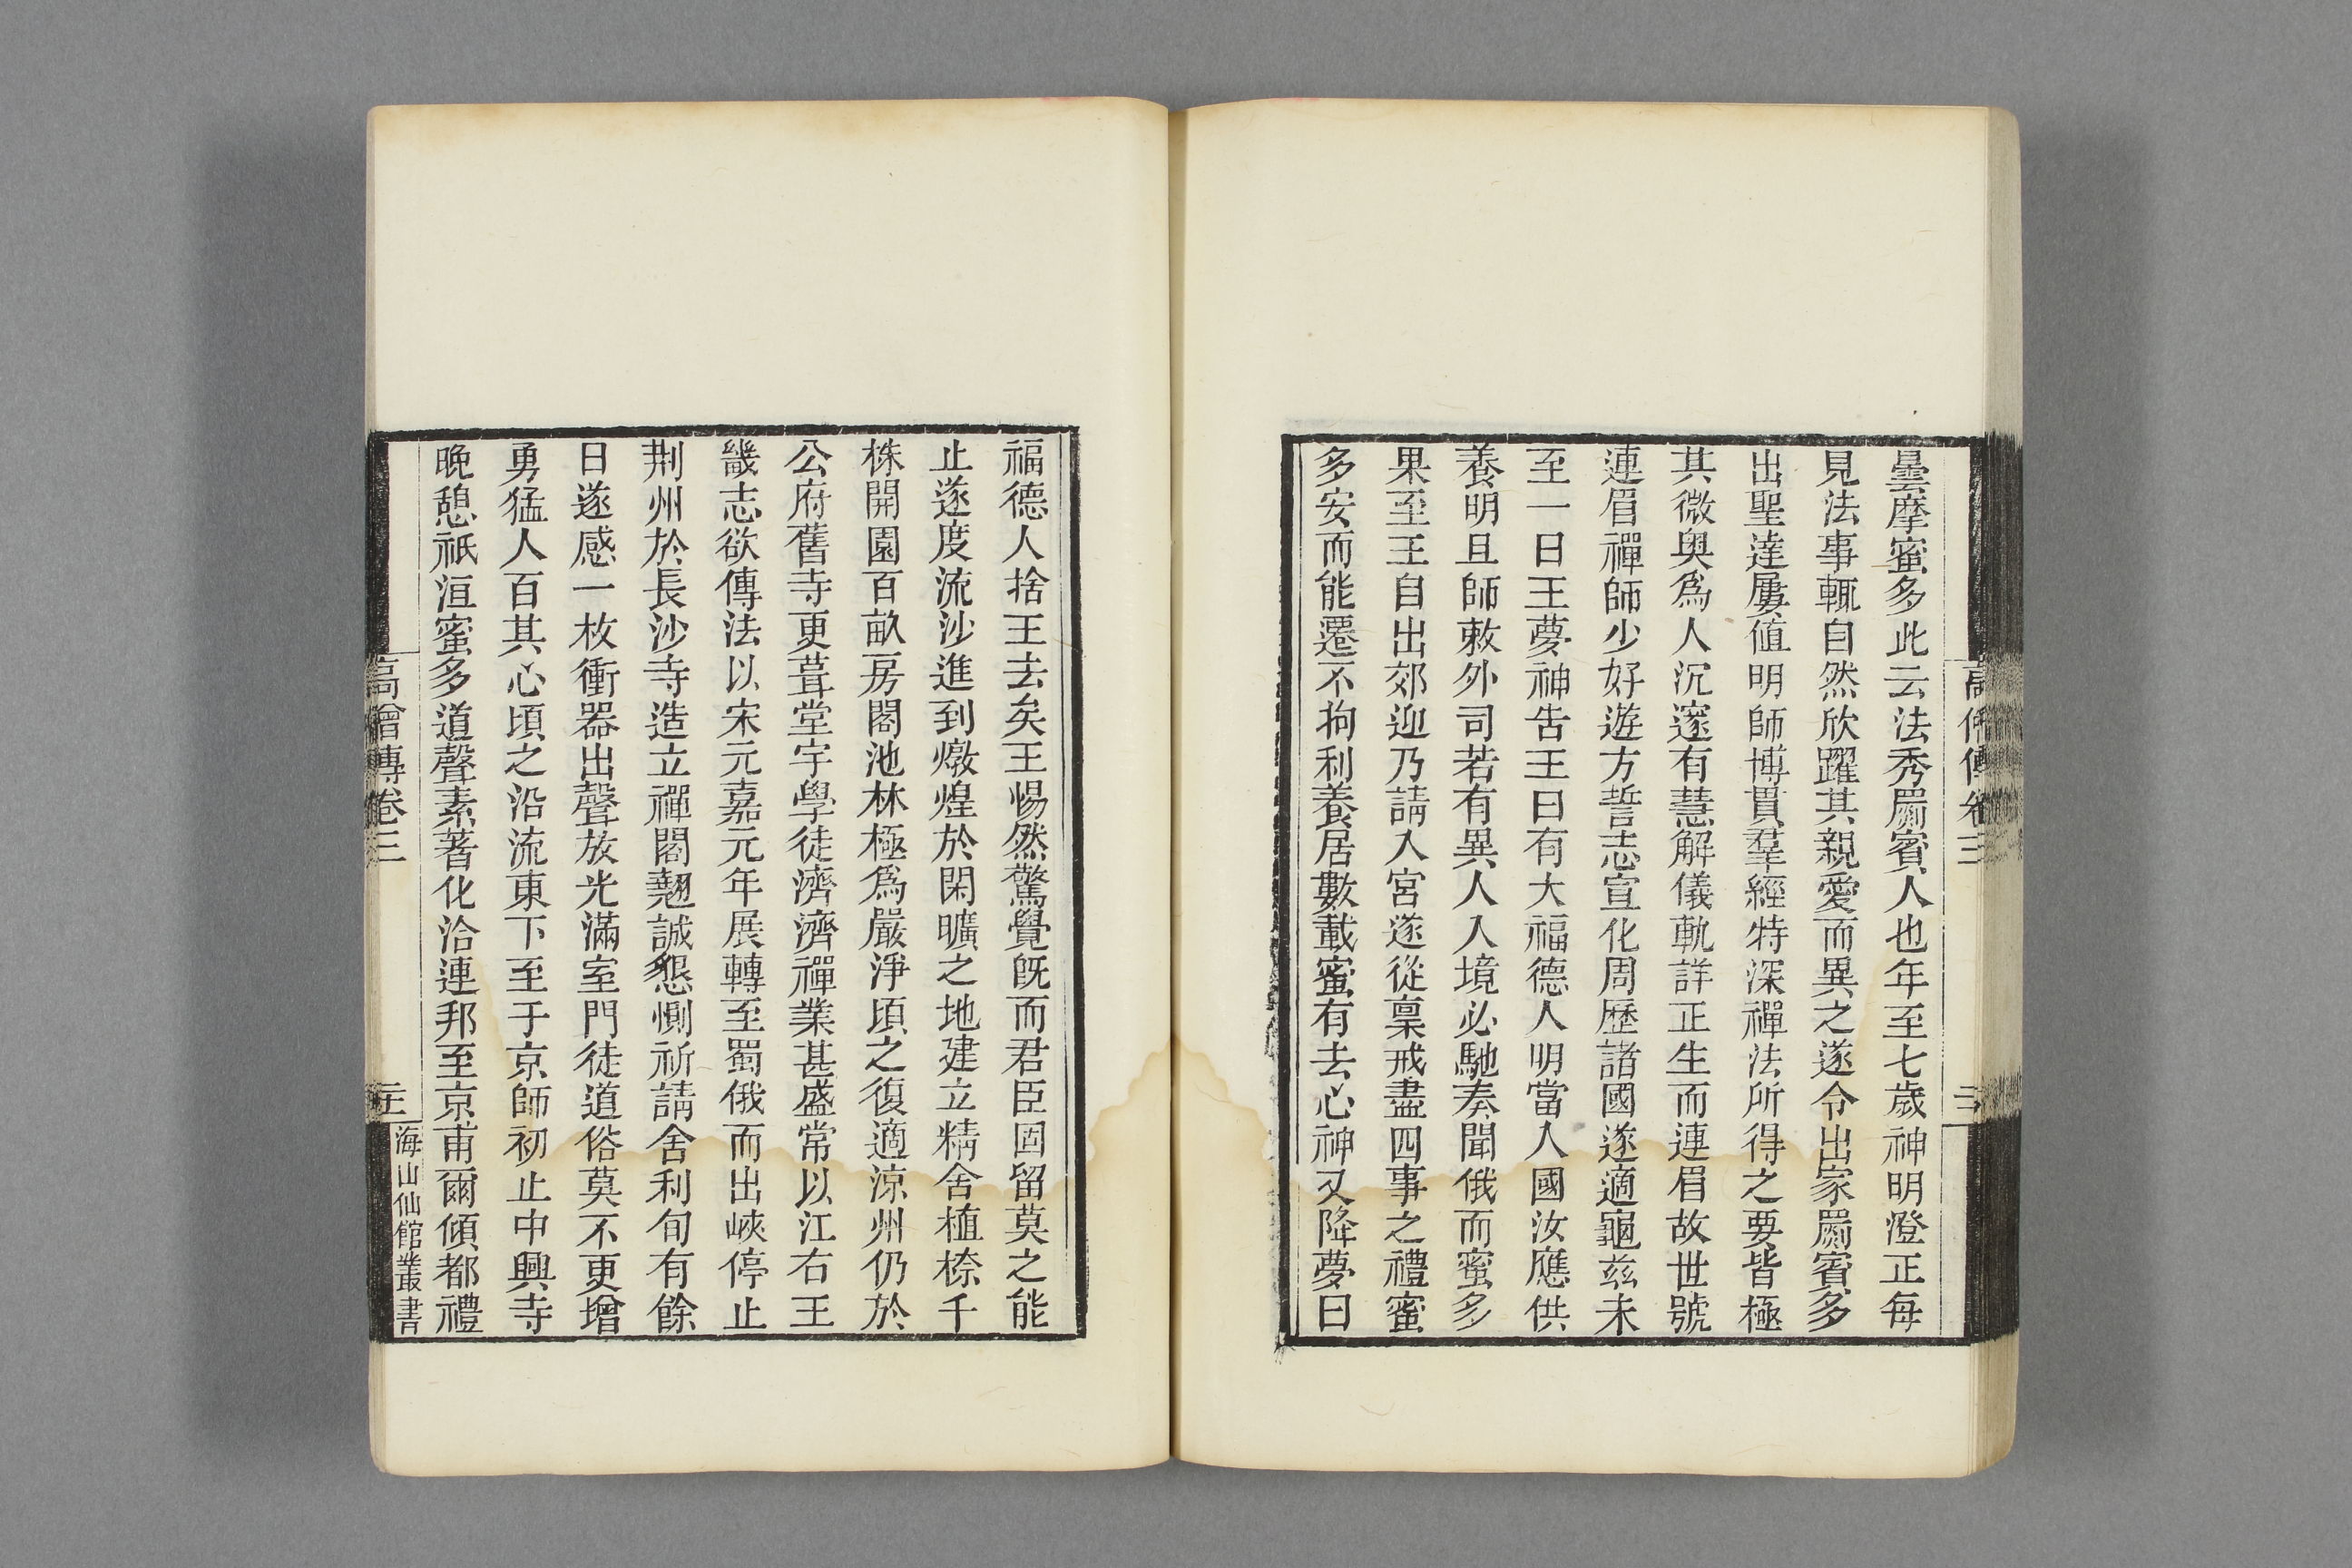 曇摩蜜多此云法秀罽賓人也年至七歲神明澄正每
見法事輒自然欣躍其親愛而異之遂令出家罽賓多
出聖達屢値明師博貫羣經特深禪法所得之要皆極
其微奥爲人沉邃有慧解儀軌詳正生而連眉故世號
連眉禪師少好遊方誓志宣化周歷諸國遂適龜兹未
至一日王夢神告王曰有大福德人明當入國汝應供
養明旦師敕外司若有異人入境必馳奏聞俄而蜜多
果至王自出郊迎乃請入宮遂從稟戒盡四事之禮蜜
多安而能遷不拘利養居數載蜜有去心神又降夢曰
福德人捨王去矣王惕然驚覺旣而君臣固留莫之能
止遂度流沙進到燉煌於閑曠之地建立精舍植㮈千
株開園百畝房閣池林極爲嚴淨頃之復適涼州仍於
公府舊寺更葺堂宇學徒濟濟禪業甚盛常以江右王
畿志欲傳法以宋元嘉元年展轉至蜀俄而出峽停止
荆州於長沙寺造立禪閣翹誠懇惻祈請舍利旬有餘
日遂感一枚衝器出聲放光滿室門徒道俗莫不更增
勇猛人百其心頃之沿流東下至于京師初止中興寺
晚憩祇洹蜜多道聲素著化洽連邦至京甫爾傾都禮
高僧傳卷三
海山仙館叢書